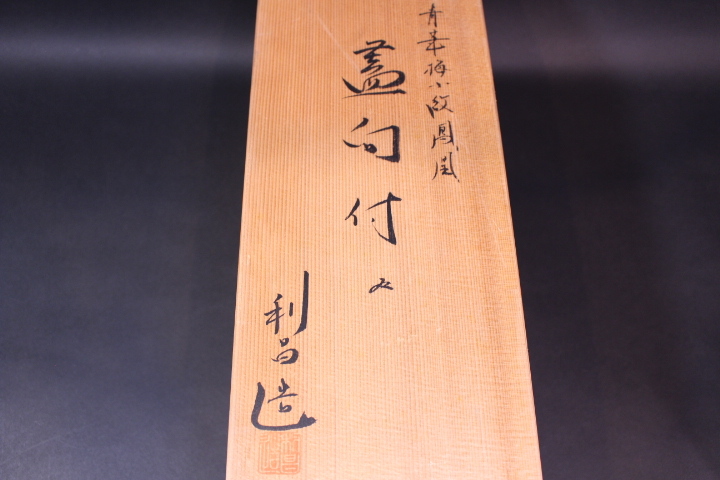 青華梅小紋鳳凰
蓋向付 五
利昌造